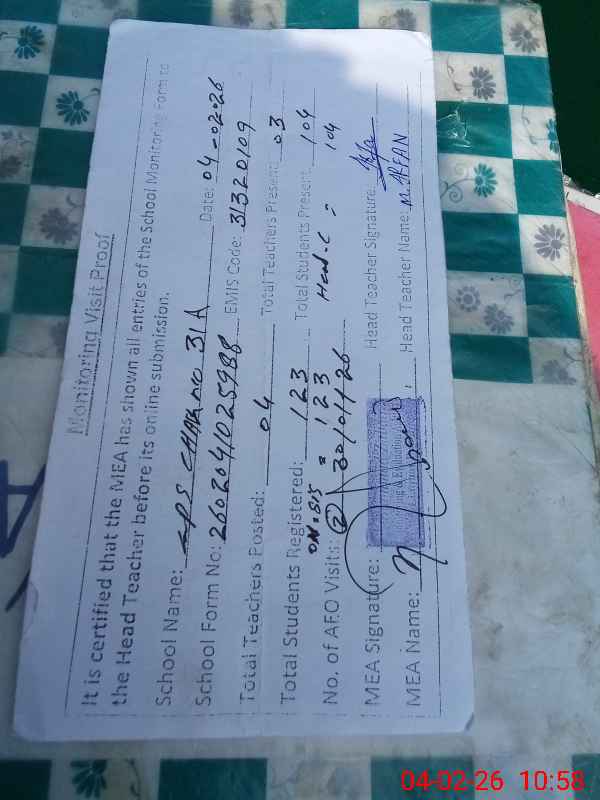 Monitoring Visit Proof
It is certified that the MEA has shown all entries of the School Monitoring Form to
the Head Teacher before its online submission.
School Name: GPS CHAK NO 31A Date: 04-02-26
School Form No: 2602041025988 EMIS Code: 31320109
Total Teachers Posted: 04 Total Teachers Present: 03
Total Students Registered: 123 Total Students Present: 104
ON. SIS = 123 Head. C = 104
No. of AEO Visits: (2) 30/01/26
MEA Signature: Head Teacher Signature:
MEA Name: Head Teacher Name: M. IRFAN
04-02-26 10:58